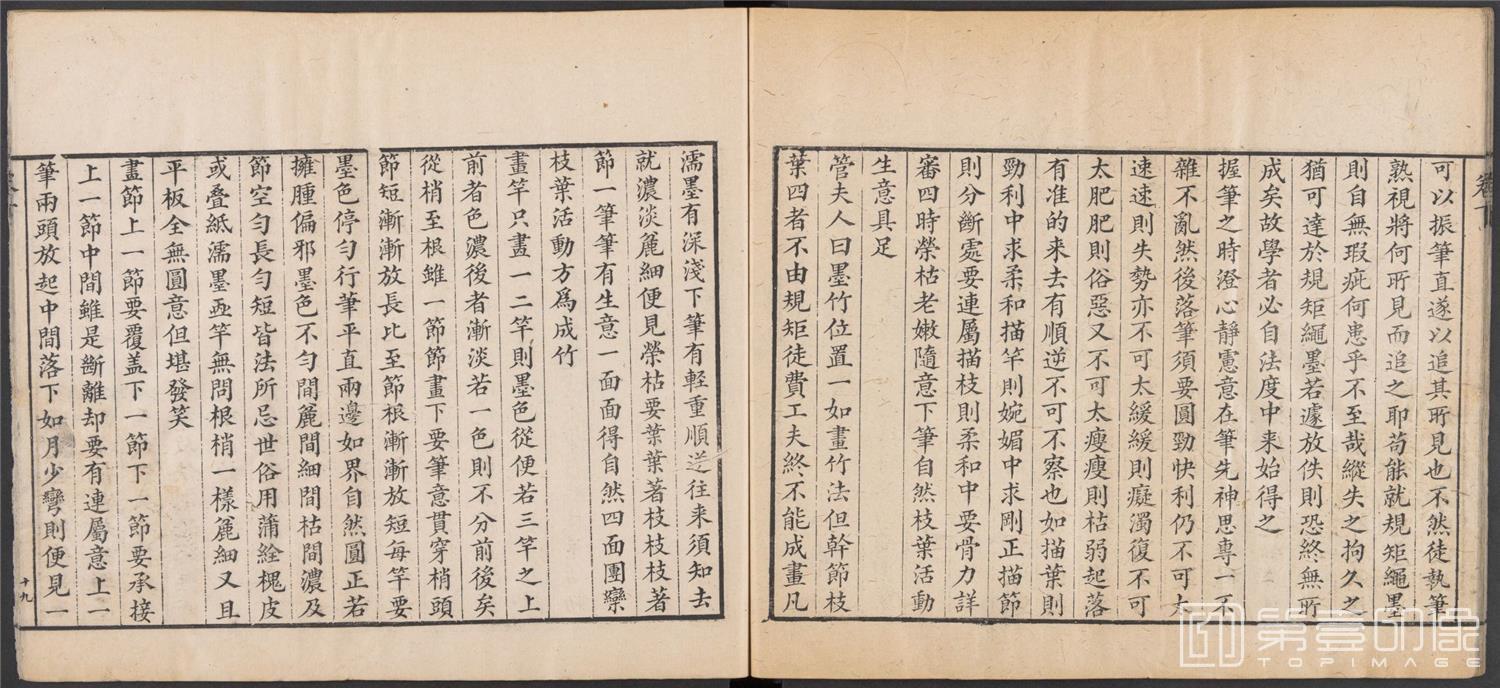 卷下
可以振筆直遂以追其所見也不然徒執筆
熟視將何所見而追之耶苟能就規矩繩墨
則自無瑕疵何患乎不至哉縱失之拘久之
猶可達於規矩繩墨若遽放佚則恐終無所
成矣故學者必自法度中来始得之
握筆之時澄心靜慮意在筆先神思專一不
雜不亂然後落筆須要圓勁快利仍不可太
速速則失勢亦不可太緩緩則癡濁復不可
太肥肥則俗惡又不可太瘦瘦則枯弱起落
有准的来去有順逆不可不察也如描葉則
勁利中求柔和描竿則婉媚中求剛正描節
則分斷處要連屬描枝則柔和中要骨力詳
審四時榮枯老嫩隨意下筆自然枝葉活動
生意具足
管夫人曰墨竹位置一如畫竹法但幹節枝
葉四者不由規矩徒費工夫終不能成畫凡
濡墨有深淺下筆有輕重順逆往来須知去
就濃淡麄細便見榮枯要葉葉著枝枝枝著
節一筆筆有生意一面面得自然四面團欒
枝葉活動方爲成竹
畫竿只畫一二竿則墨色從便若三竿之上
前者色濃後者漸淡若一色則不分前後矣
從梢至根雖一節節畫下要筆意貫穿梢頭
節短漸漸放長比至節根漸漸放短每竿要
墨色停勻行筆平直兩邊如界自然圓正若
擁腫偏邪墨色不勻間麄間細間枯間濃及
節空勻長勻短皆法所忌世俗用蒲絟槐皮
或叠紙濡墨畫竿無問根梢一樣麄細又且
平板全無圓意但堪發笑
畫節上一節要覆盖下一節下一節要承接
上一節中間雖是斷離却要有連屬意上一
筆兩頭放起中間落下如月少彎則便見一
十九
第壹印像
TOPIMAGE